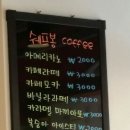 쉐프봉 coffee
아메리카노 ₩2000
카페라떼 ₩3000
카페모카 ₩3000
바닐라라떼 ₩3000
카라멜 마끼아또 ₩3000
복숭아 아이스티 ₩2000